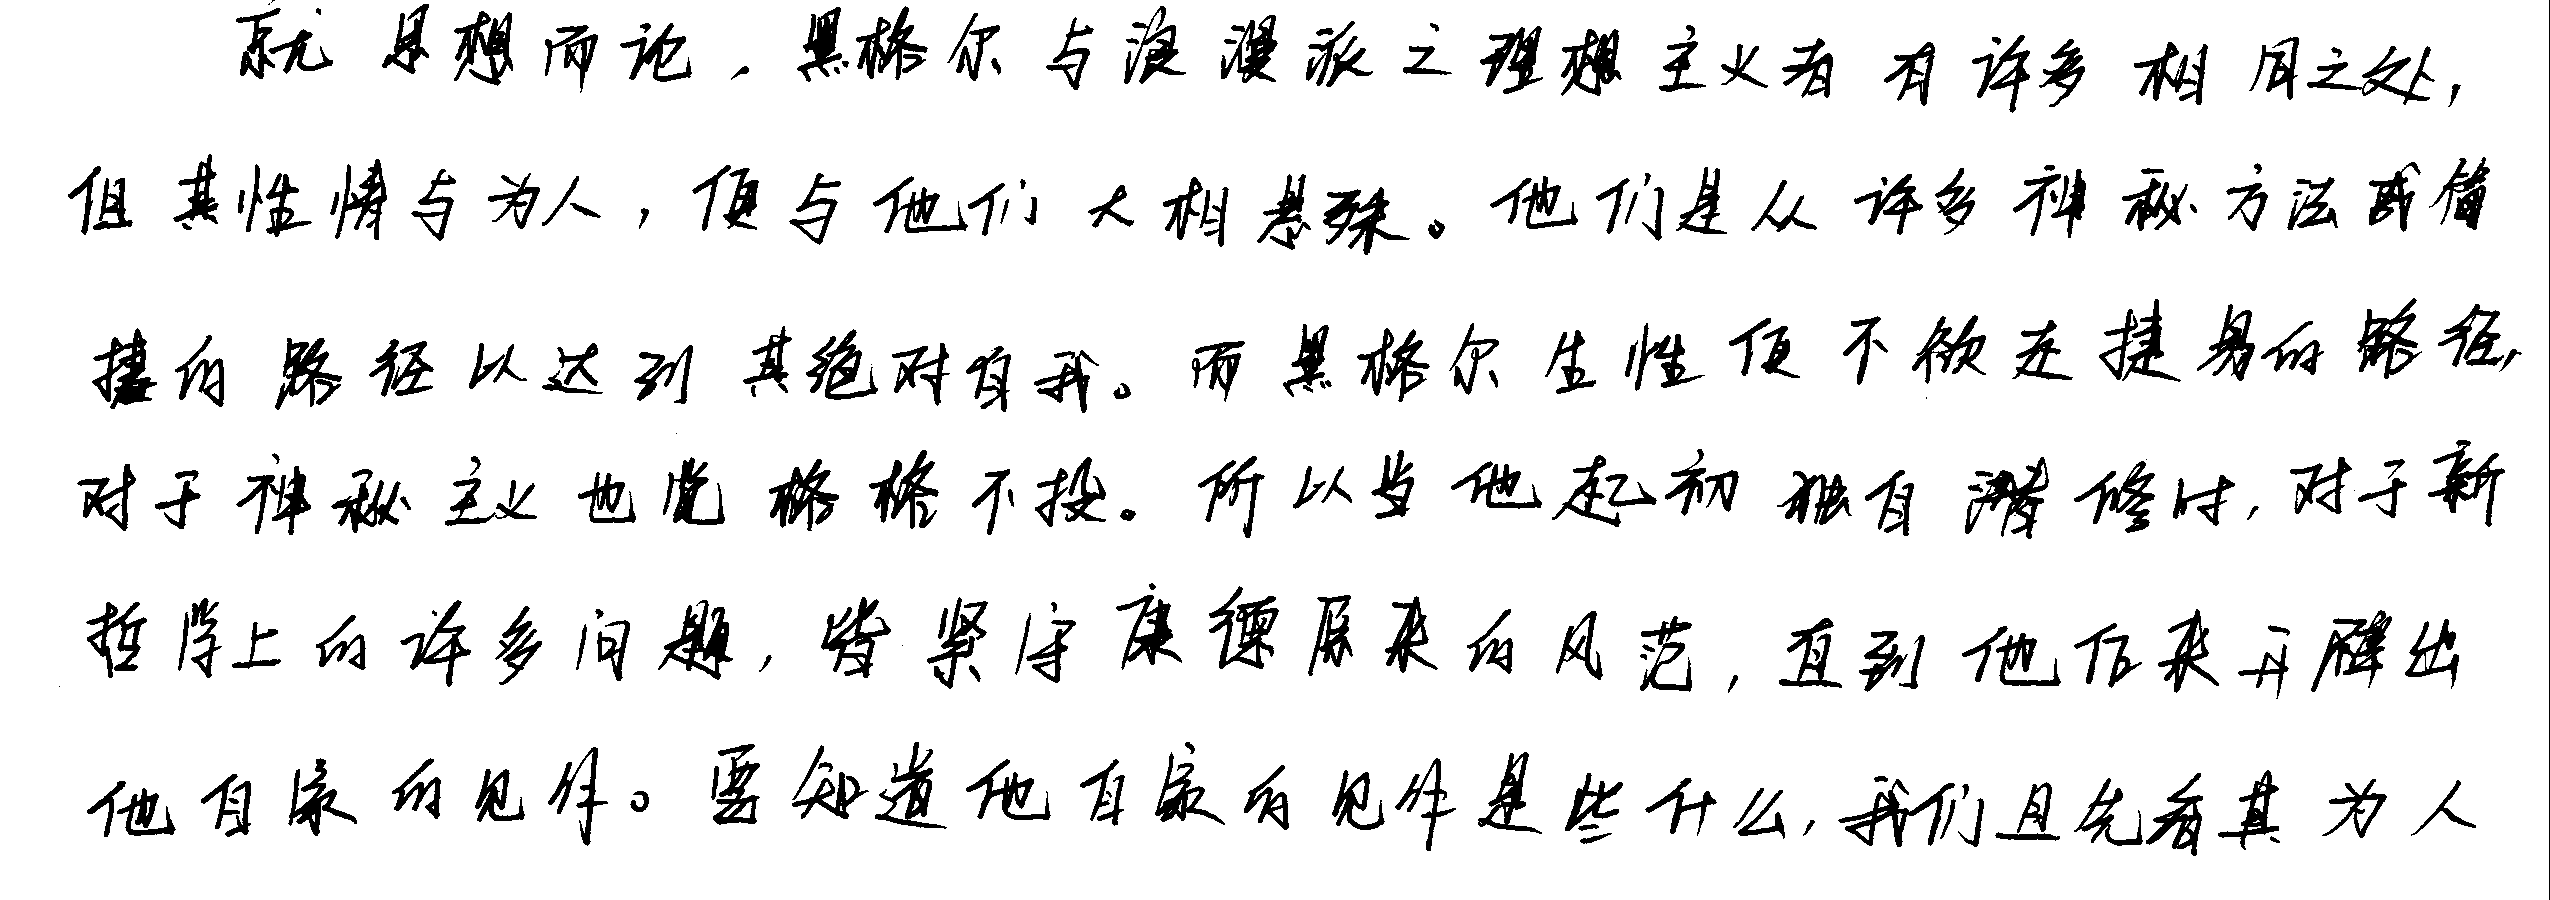 就思想而论，黑格尔与浪漫派之理想主义者有许多相同之处，
但其性情与为人，便与他们大相悬殊。他们是从许多神秘方法或简
捷的路径以达到其绝对自我。而黑格尔生性便不欲走捷易的路径，
对于神秘主义也觉格格不投。所以当他起初独自潜修时，对于新
哲学上的许多问题，皆紧守康德原来的风范，直到他后来开辟出
他自家的见解。要知道他自家的见解是些什么，我们且先看其为人